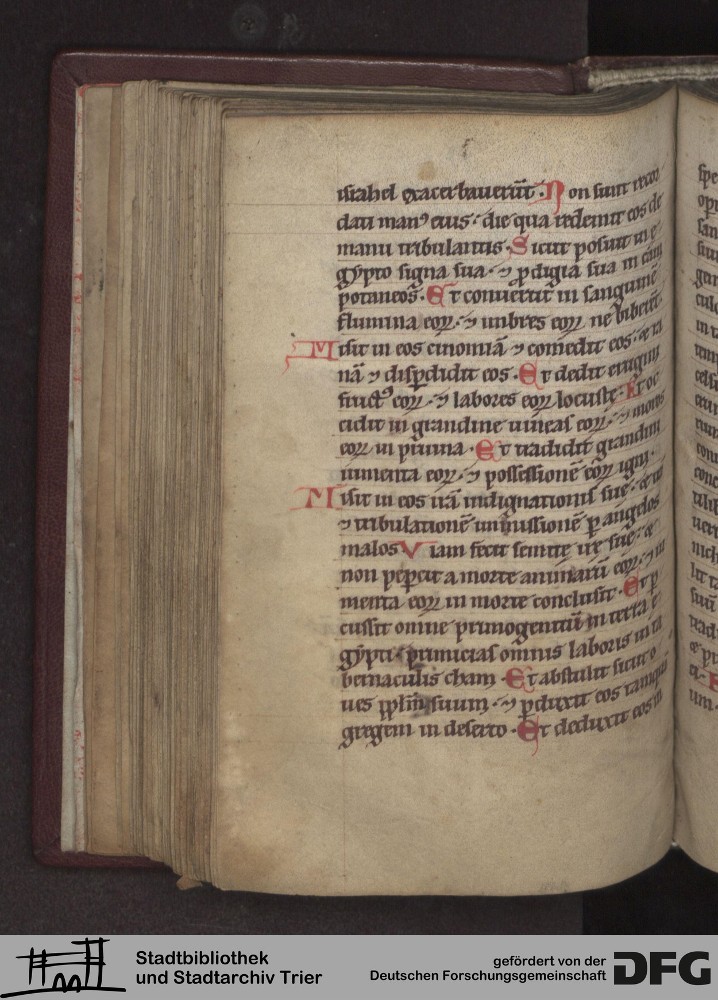 israhel exacerbauerūt. Non sunt recor
dati manꝰ eius. die qua redemit eos de
manu tribulantis. Sicut posuit in e
gypto signa sua. ⁊ ꝓdigia sua in cām
potaneos. Et conuertit in sanguinē
flumina eoꝝ. ⁊ imbres eoꝝ ne biberēt.
Misit in eos cinomiā ⁊ comedit eos. & ra
nā ⁊ disꝑdidit eos. Et dedit erugini
fructꝰ eoꝝ. ⁊ labores eoꝝ locuste. Et oc
cidit in grandine uineas eoꝝ. ⁊ moros
eoꝝ in pruina. Et tradidit grandini
iumenta eoꝝ. ⁊ possessionē eoꝝ igni.
Misit in eos irā indignationis sue. &
⁊ tribulationē inmissionē ꝑ angelos
malos Viam fecit semite ire sue. &
non peꝑcit a morte animarū eoꝝ. ⁊ iu
menta eoꝝ in morte conclusit. Et ꝑ
cussit omne primogenitū in terra e
gypti. primicias omnis laboris in ta
bernaculis cham. Et abstulit sicut o
ues pplm̄ suum. ⁊ ꝑduxit eos tamquā
gregem in deserto. Et deduxit eos in
Stadtbibliothek
und Stadtarchiv Trier
gefördert von der
Deutschen Forschungsgemeinschaft
DFG